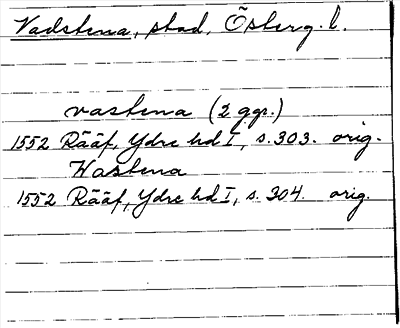 Vadstena, stad, Österg. l.
vastena (2 ggr.)
1552 Rääf, Ydre hd I, s. 303. orig.
Wastena
1552 Rääf, Ydre hd I, s. 304. orig.